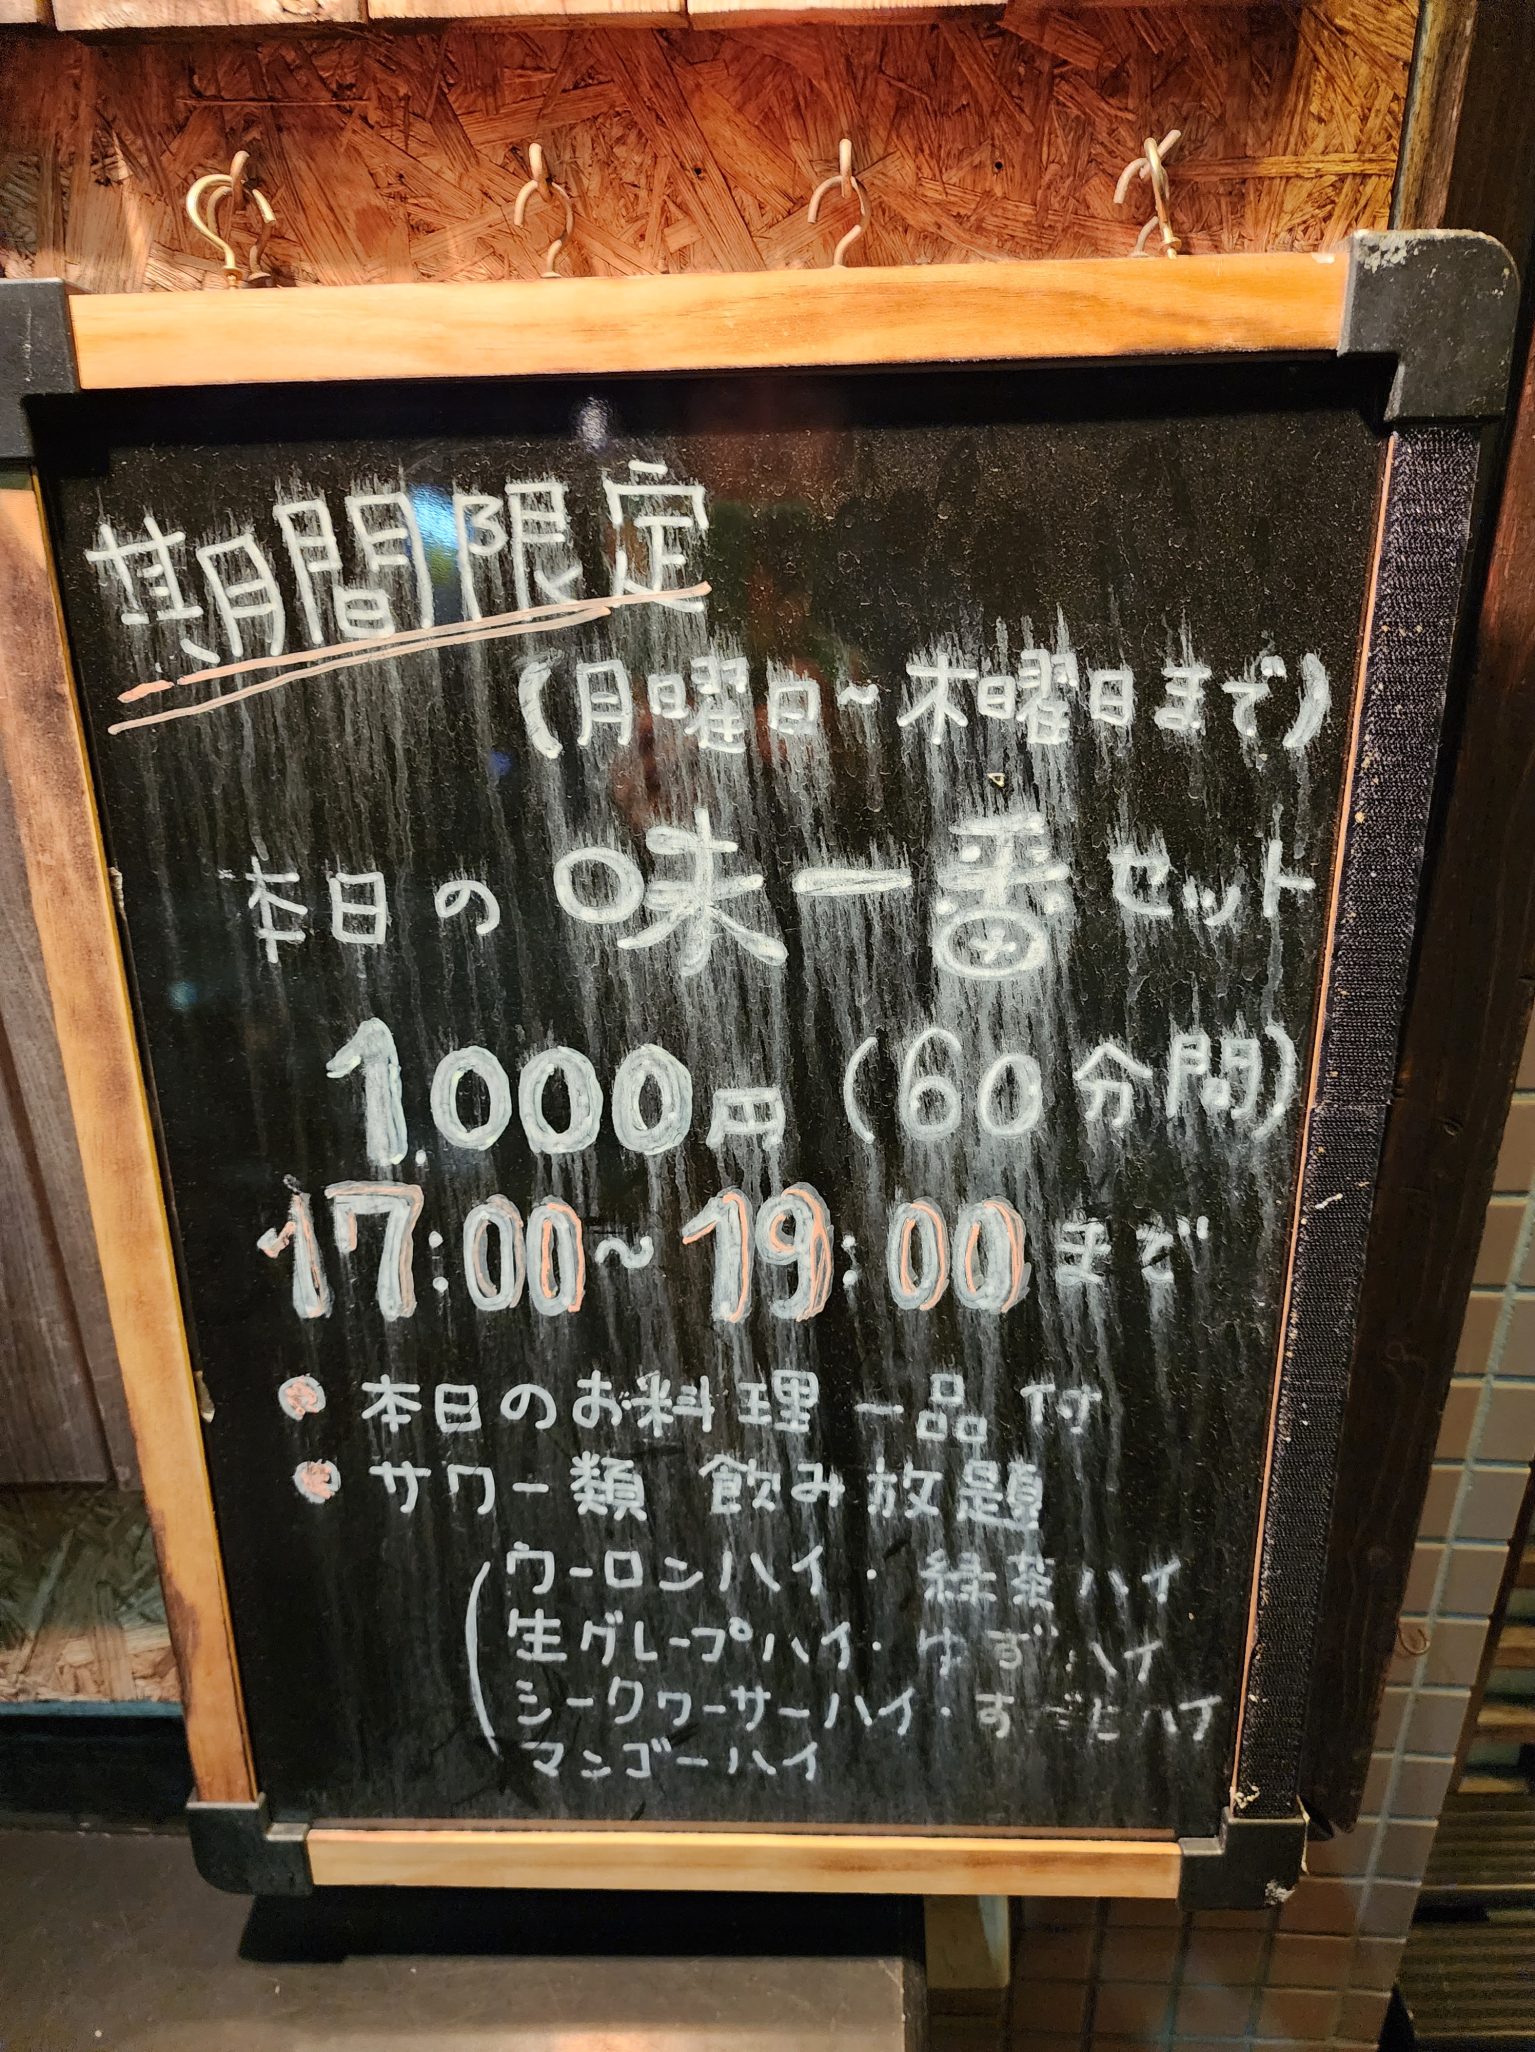 期間限定
(月曜日～木曜日まで)
本日の 味一番 セット
1,000円 (60分間)
17:00～19:00まで
本日のお料理一品付
サワー類 飲み放題
ウーロンハイ・緑茶ハイ
生グレープハイ・ゆずハイ
シークヮーサーハイ・すだちハイ
マンゴーハイ